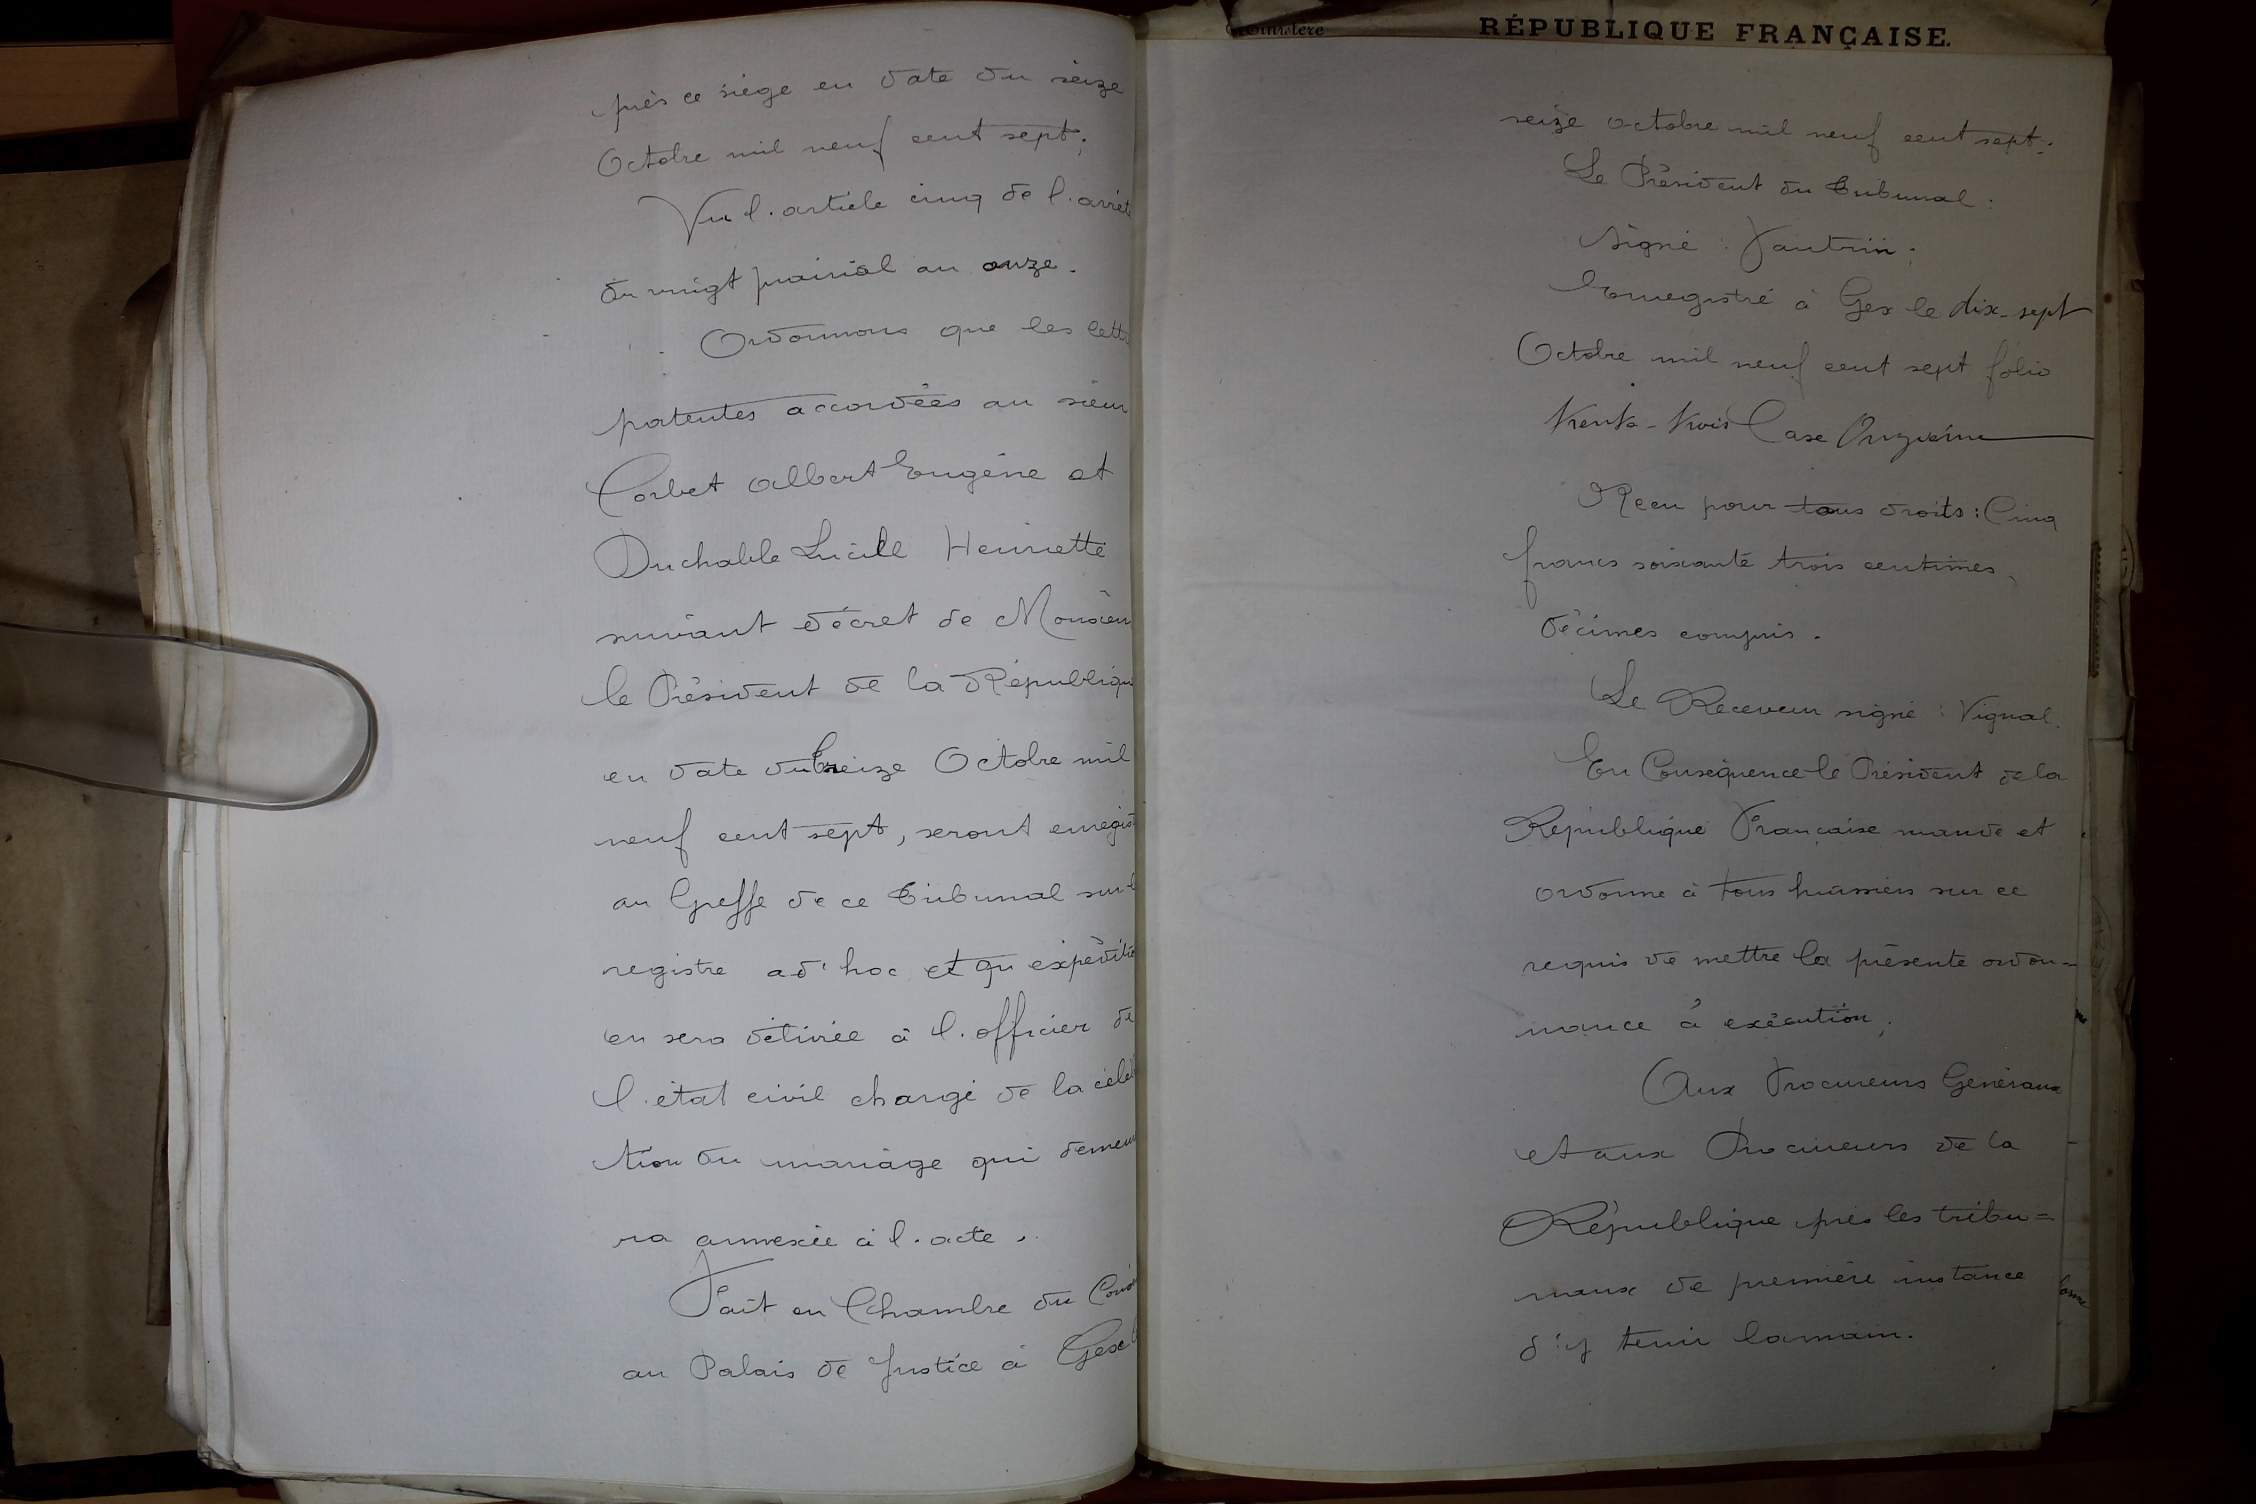 près ce siège en date du seize
Octobre mil neuf cent sept;
Vu l'article cinq de l'arrêt
du vingt prairial an onze.
Ordonnons que les lett
patentes accordées au sieur
Corbet Albert Eugène et
Duchable Lucile Henriette
suivant décret de Monsieur
le Président de la Républiqu
en date du treize Octobre mil
neuf cent sept, seront enregist
au Greffe de ce Tribunal sur l
registre ad'hoc et qu'expéditio
en sera délivrée à l'officier de
l'état civil chargé de la célé
tion du mariage qui demeu
ra annexée à l'acte.
Fait en Chambre du Cons
au Palais de Justice à Gex l
Ministère
RÉPUBLIQUE FRANÇAISE.
seize octobre mil neuf cent sept.
Le Président du Tribunal.
Signé : Vautrin.
Enregistré à Gex le dix-sept
Octobre mil neuf cent sept folio
trente-trois Case Onzième
Reçu pour tous droits : Cinq
francs soixante trois centimes,
décimes compris.
Le Receveur signé : Vignal.
En Conséquence le Président de la
République Française mande et
ordonne à tous huissiers sur ce
requis de mettre la présente ordon=
nance à exécution;
Aux Procureurs Généraux
et aux Procureurs de la
République près les tribu=
naux de première instance
d'y tenir la main.